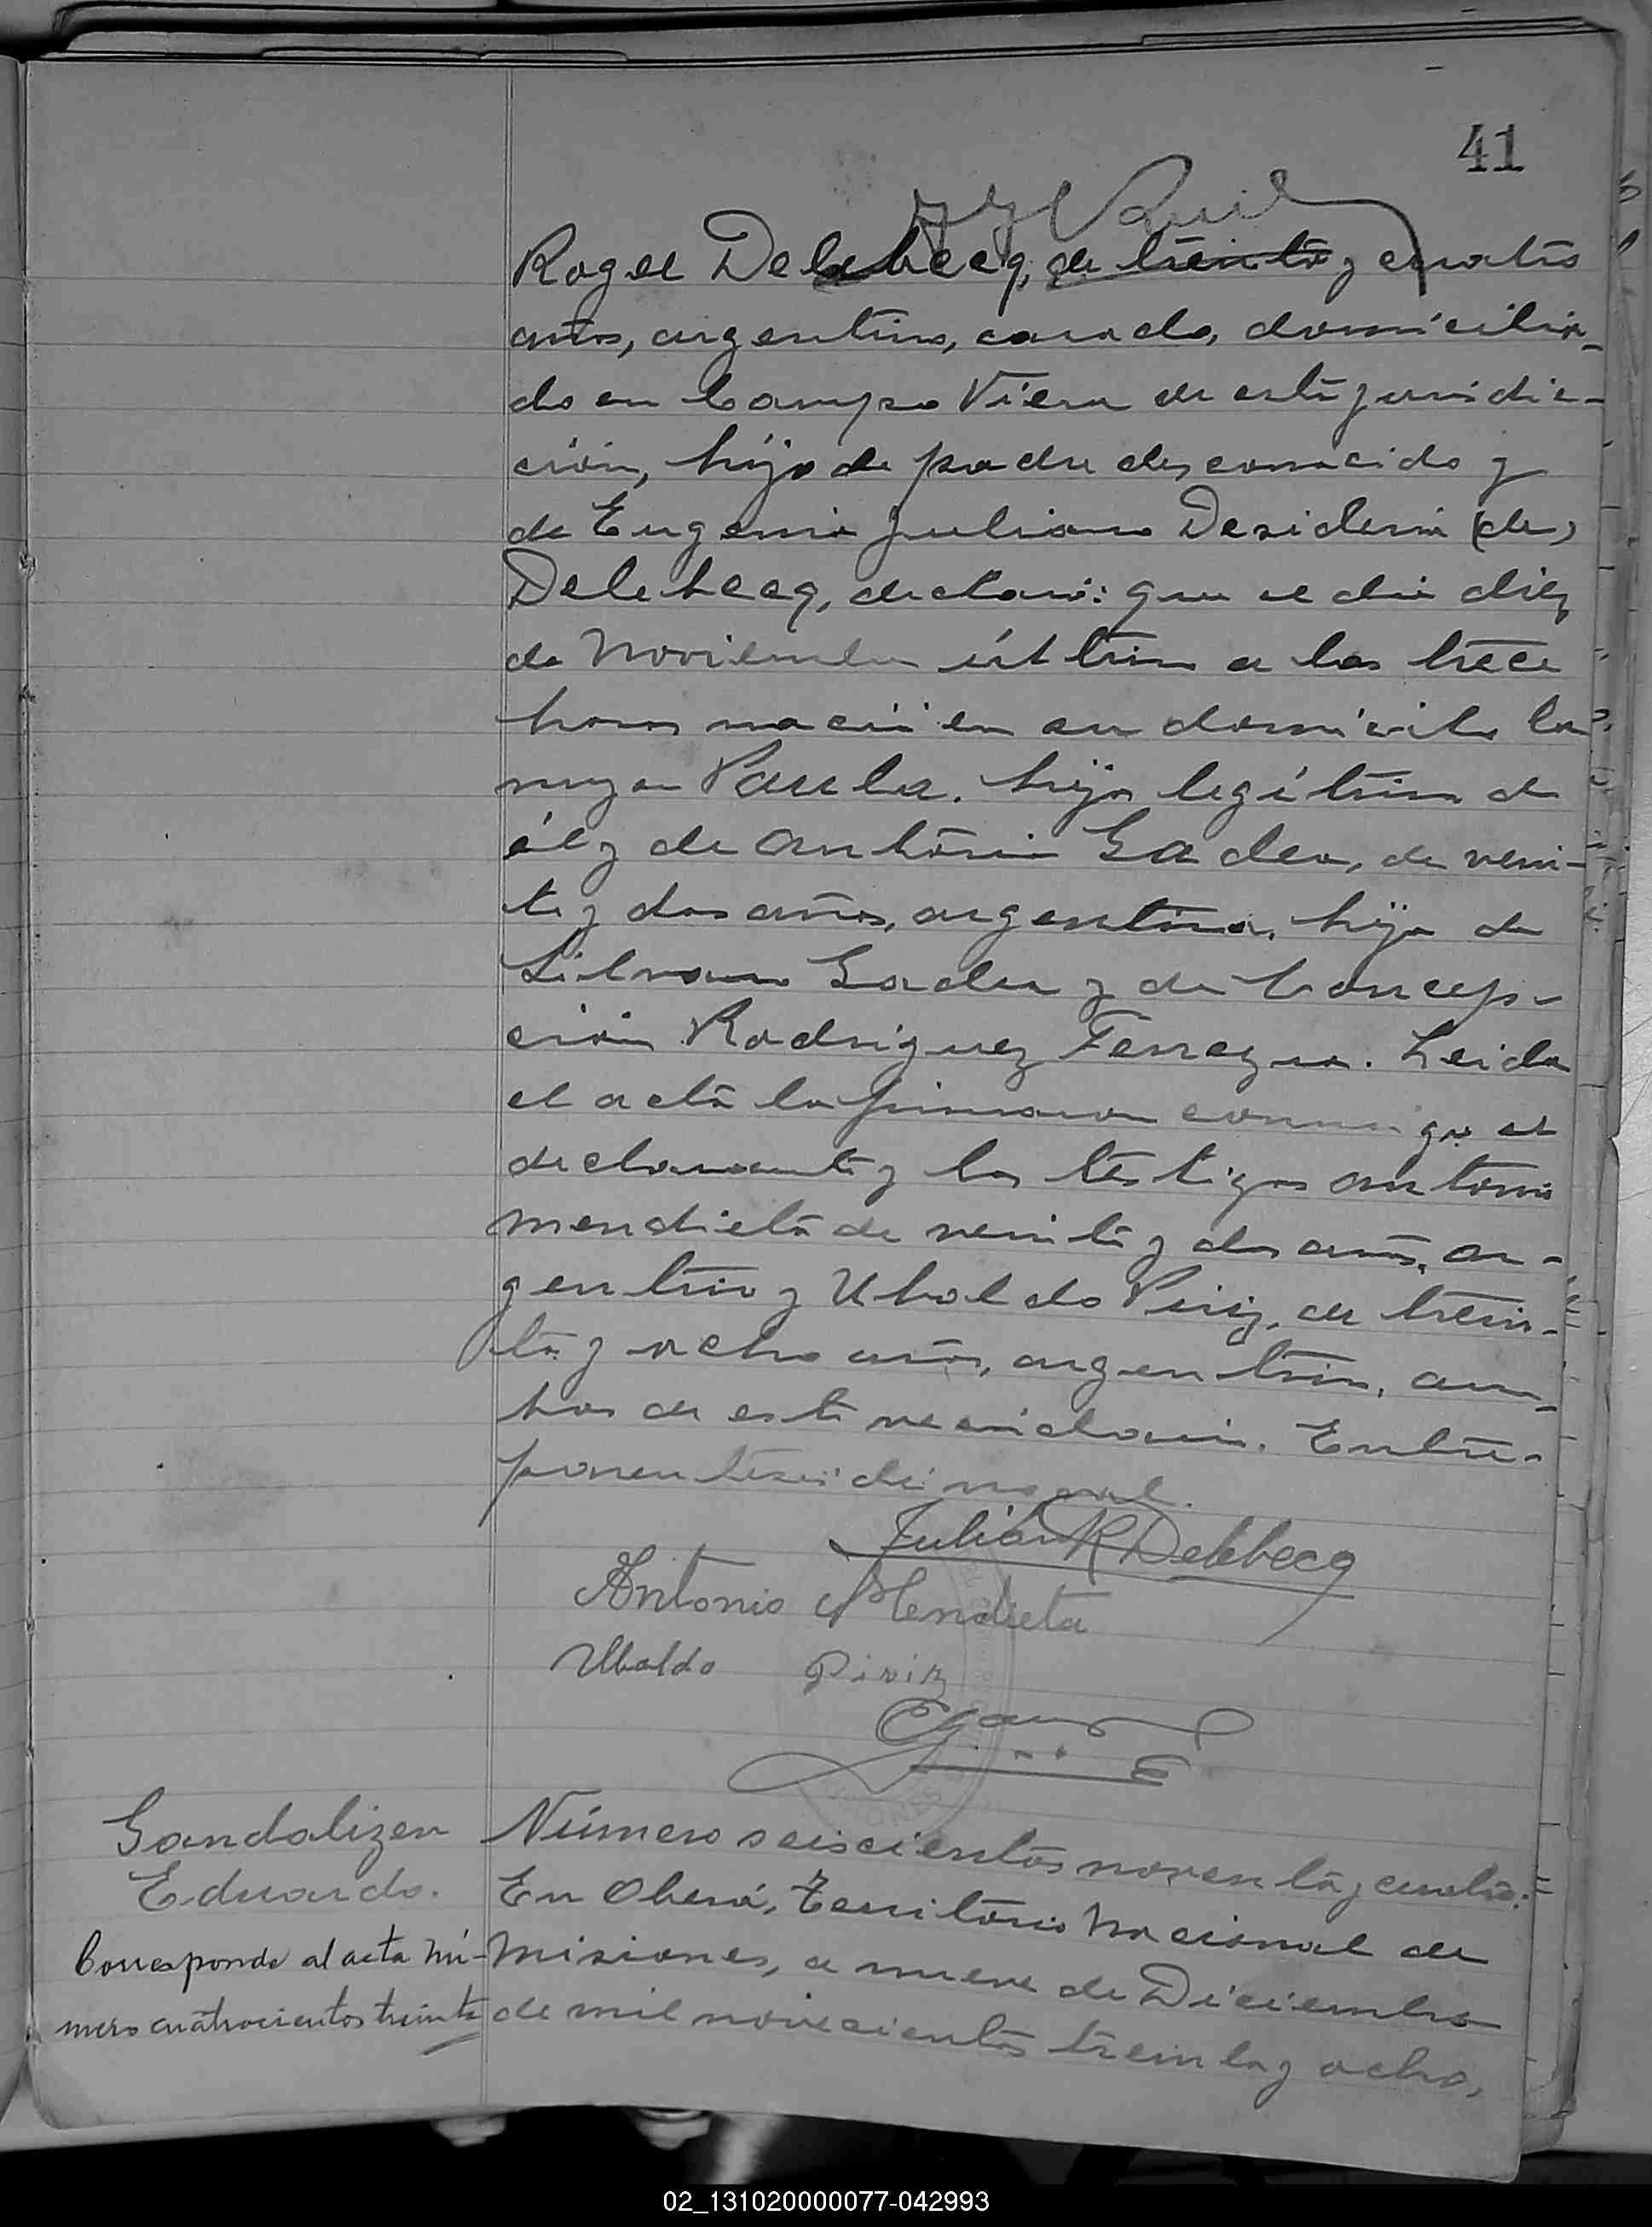 41
Roger Delebecq, de treinta y cuatro
años, argentino, casado, domicilia-
do en Campo Viera de esta jurisdic-
ción, hijo de padre desconocido y
de Eugenia Juliana Desideria (de)
Delebecq, declaró: que el día diez
de Noviembre último a las trece
horas nació en su domicilio la
mujer Paula. hija legítima de
él y de Antonia Gadea, de vein-
te y dos años, argentina, hija de
Silvano Gadea y de Concep-
ción Rodriguez Ferreyra. Leida
el acta la firmaron conmigo el
declarante y los testigos Antonio
Mendieta de veinte y dos años, ar-
gentino y Ubaldo Piriz, de trein-
ta y ocho años, argentino, am-
bos de este vecindario. Entre-
parentesis: de: no vale.
Julián R Delebecq
Antonio Mendieta
Ubaldo Piriz
Gandalizen
Eduardo.
Corresponde al acta nú-
mero cuatrocientos treinta
Número seiscientos noventa y cuatro:
En Oberá, Territorio Nacional de
Misiones, a nueve de Diciembre
de mil novecientos treinta y ocho,
02_131020000077-042993